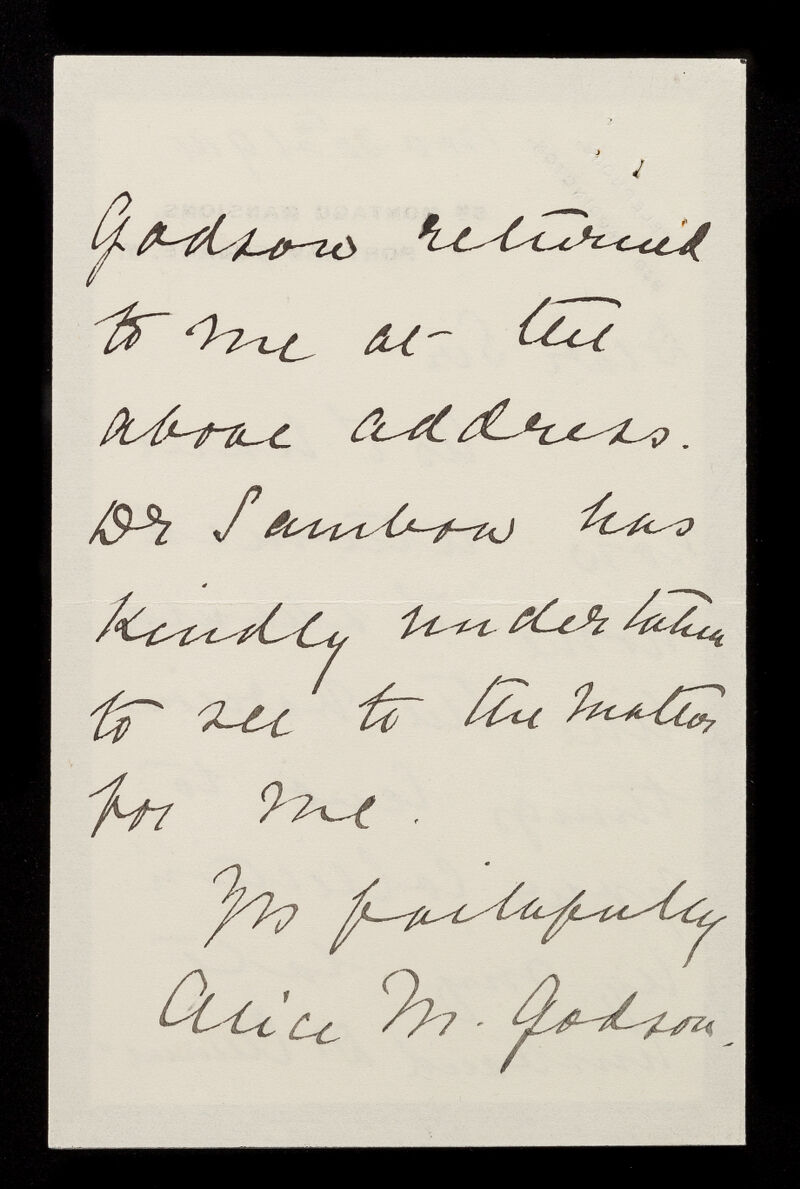 Godson returned
to me at the
above address.
Dr Sambon has
kindly undertaken
to see to the matter
for me.
Yrs faithfully
Alice M. Godson.